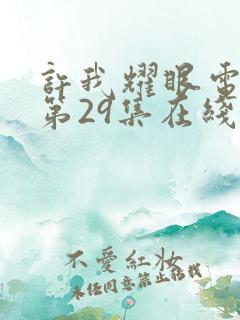 許我耀眼電
第29集在綫
不愛紅妝
未經同意禁止轉載